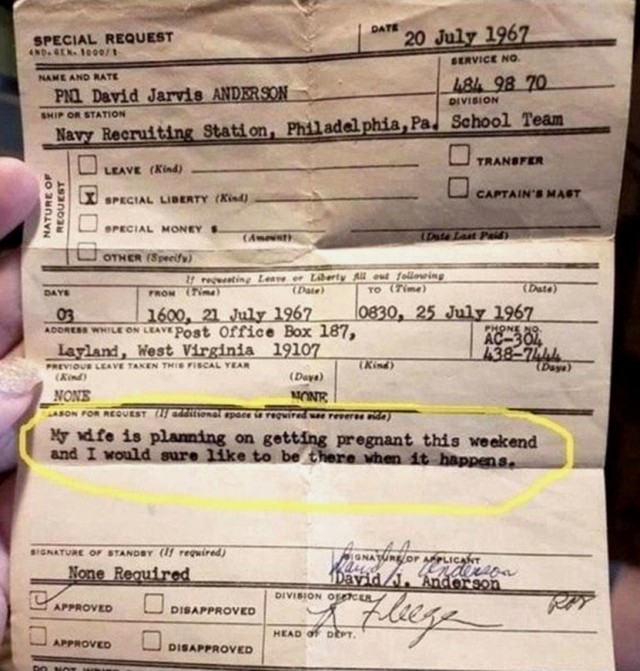 SPECIAL REQUEST
DATE 20 July 1967
SERVICE NO.
NAME AND RATE
PN1 David Jarvis ANDERSON
484 98 70
SHIP OR STATION
DIVISION
Navy Recruiting Station, Philadelphia, Pa. School Team
NATURE OF REQUEST
LEAVE (Kind)
TRANSFER
X SPECIAL LIBERTY (Kind)
CAPTAIN'S MAST
SPECIAL MONEY $
(Amount) (Date Last Paid)
OTHER (Specify)
If requesting Leave or Liberty fill out following
DAYS FROM (Time) (Date) TO (Time) (Date)
03 1600, 21 July 1967 0830, 25 July 1967
ADDRESS WHILE ON LEAVE Post Office Box 187, PHONE NO.
AC-304
Layland, West Virginia 19107 438-7444
PREVIOUS LEAVE TAKEN THIS FISCAL YEAR
(Kind) (Days) (Kind) (Days)
NONE NONE
REASON FOR REQUEST (If additional space is required use reverse side)
My wife is planning on getting pregnant this weekend
and I would sure like to be there when it happens.
SIGNATURE OF STANDBY (If required) SIGNATURE OF APPLICANT
David J. Anderson
None Required David J. Anderson
APPROVED DISAPPROVED DIVISION OFFICER
HEAD OF DEPT.
APPROVED DISAPPROVED
DO NOT WRITE